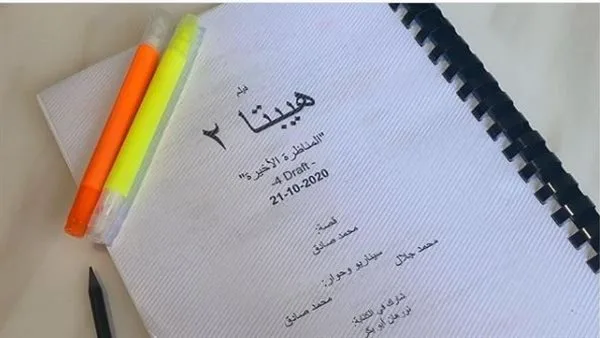 فيلم
هيبتا ٢
"المناظرة الأخيرة"
-4 Draft -
21-10-2020
قصة:
محمد صادق
سيناريو وحوار:
محمد جلال
محمد صادق
شارك في الكتابة:
نورهان أبو بكر